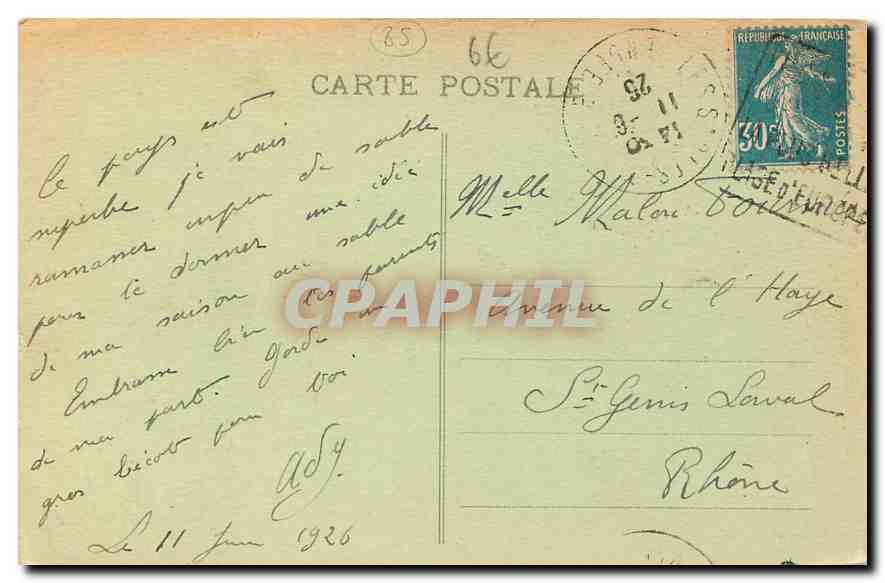 85
6€
CARTE POSTALE
REPUBLIQUE FRANÇAISE
30c
POSTES
14 30
11
26
Le pays est
superbe je vais
ramasser un peu de sable
pour te donner une idée
de ma saison au sable
Embrasse bien tes parents
de ma part. Garde un
gros bécot pour toi
Ady.
Le 11 Juin 1926
Melle Malou
Avenue de l'Haye
St Genis Laval
Rhône
CPAPHIL